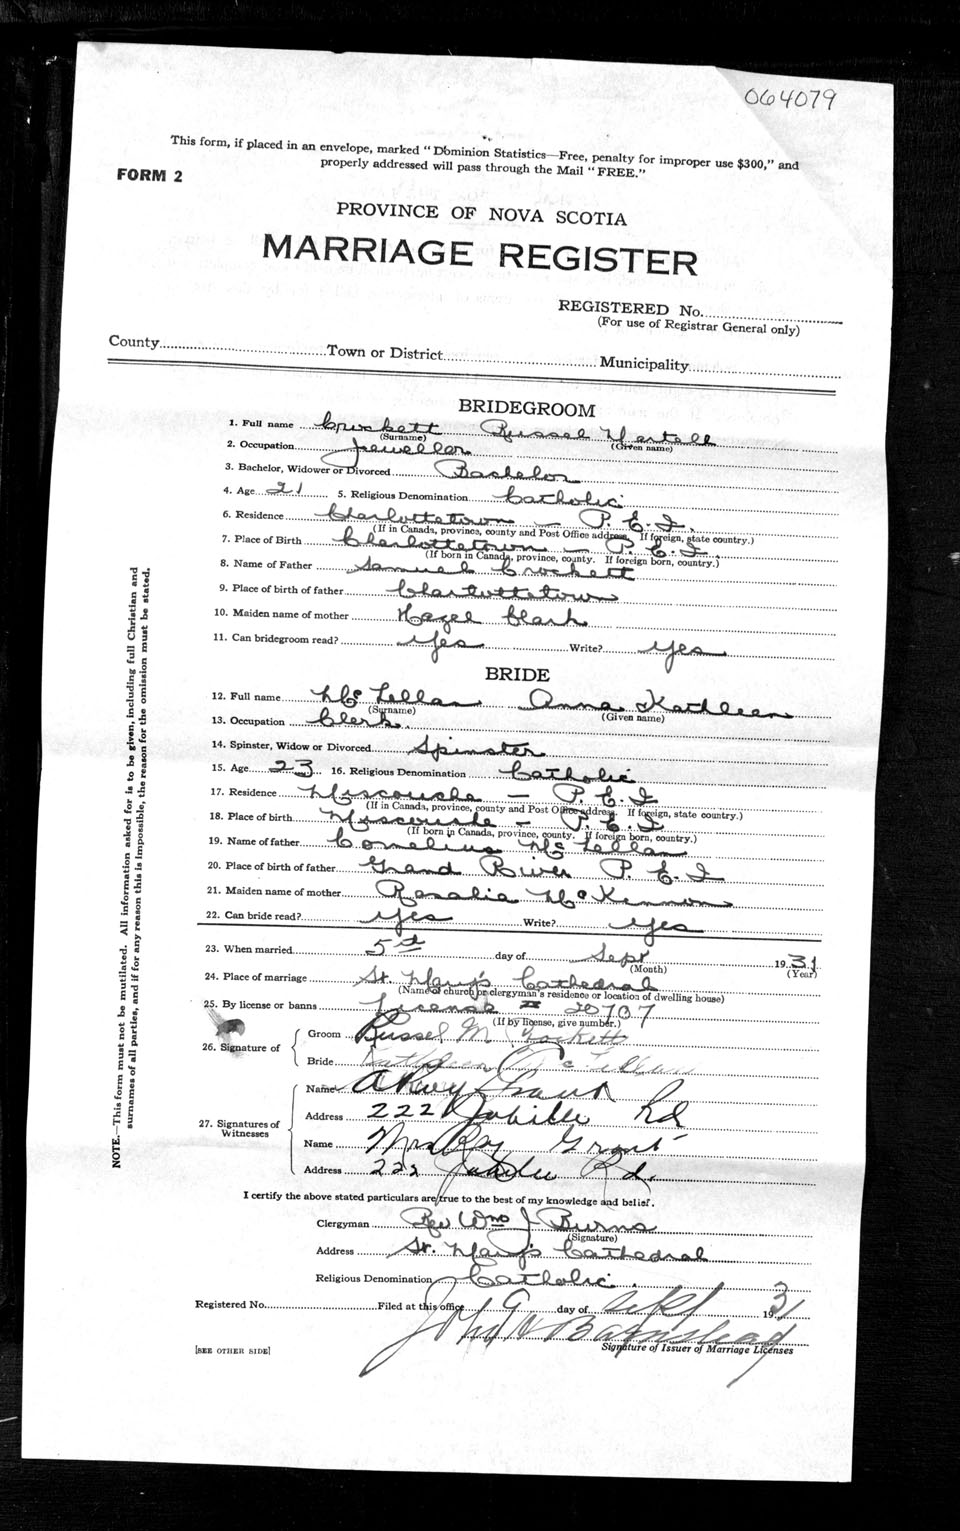 064079
This form, if placed in an envelope, marked "Dominion Statistics—Free, penalty for improper use $300," and
properly addressed will pass through the Mail "FREE."
FORM 2
PROVINCE OF NOVA SCOTIA
MARRIAGE REGISTER
REGISTERED No.
(For use of Registrar General only)
County Town or District Municipality
BRIDEGROOM
1. Full name Crockett Russel
(Surname) (Given name)
2. Occupation Jeweller
3. Bachelor, Widower or Divorced Bachelor
4. Age 21 5. Religious Denomination Catholic
6. Residence Charlottetown — P. E. I.
(If in Canada, province, county and Post Office address. If foreign, state country.)
7. Place of Birth Charlottetown — P. E. I.
(If born in Canada, province, county. If foreign born, country.)
8. Name of Father Samuel Crockett
9. Place of birth of father Charlottetown
10. Maiden name of mother Hazel Clark
11. Can bridegroom read? yes Write? yes
BRIDE
12. Full name McLellan Anna Kathleen
(Surname) (Given name)
13. Occupation Clerk.
14. Spinster, Widow or Divorced Spinster
15. Age 23 16. Religious Denomination Catholic
17. Residence Miscouche — P. E. I
(If in Canada, province, county and Post Office address. If foreign, state country.)
18. Place of birth Miscouche — P. E. I
(If born in Canada, province, county. If foreign born, country.)
19. Name of father Cornelius McLellan
20. Place of birth of father Grand River P. E. I
21. Maiden name of mother Rosalie McKinnon
22. Can bride read? yes Write? yes
23. When married 5th day of Sept 1931
(Month) (Year)
24. Place of marriage St. Mary's Cathedral
(Name of church or clergyman's residence or location of dwelling house)
25. By license or banns License # 20707
(If by license, give number.)
26. Signature of
Groom Russel M Crockett
Bride Kathleen McLellan
27. Signatures of
Witnesses
Name Grant
Address 222 Jubilee Rd
Name Mrs Roy Grant
Address 222 Jubilee Rd.
I certify the above stated particulars are true to the best of my knowledge and belief.
Clergyman Rev Wm J Burns
(Signature)
Address St. Mary's Cathedral
Religious Denomination Catholic.
Registered No. Filed at this office 9 day of Sept 1931
John A Barnstead
Signature of Issuer of Marriage Licenses
[SEE OTHER SIDE]
NOTE.—This form must not be mutilated. All information asked for is to be given, including full Christian and
surnames of all parties, and if for any reason this is impossible, the reason for the omission must be stated.